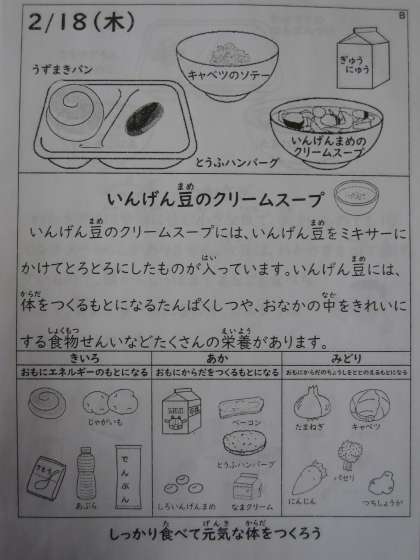 2/18(木)
B
うずまきパン
キャベツのソテー
ぎゅう
にゅう
とうふハンバーグ
いんげんまめの
クリームスープ
いんげん豆のクリームスープ
まめ
いんげん豆のクリームスープには、いんげん豆をミキサーに
まめ まめ
かけてとろとろにしたものが入っています。いんげん豆には、
はい まめ
体をつくるもとになるたんぱくしつや、おなかの中をきれいに
からだ なか
する食物せんいなどたくさんの栄養があります。
しょくもつ えいよう
きいろ
おもにエネルギーのもとになる
あか
おもにからだをつくるもとになる
みどり
おもにからだのちょうしをととのえるもとになる
じゃがいも
さとう
あぶら
でんぷん
ベーコン
とうふハンバーグ
しろいんげんまめ
なまクリーム
たまねぎ
キャベツ
パセリ
にんじん
つちしょうが
しっかり食べて元気な体をつくろう
た げんき からだ